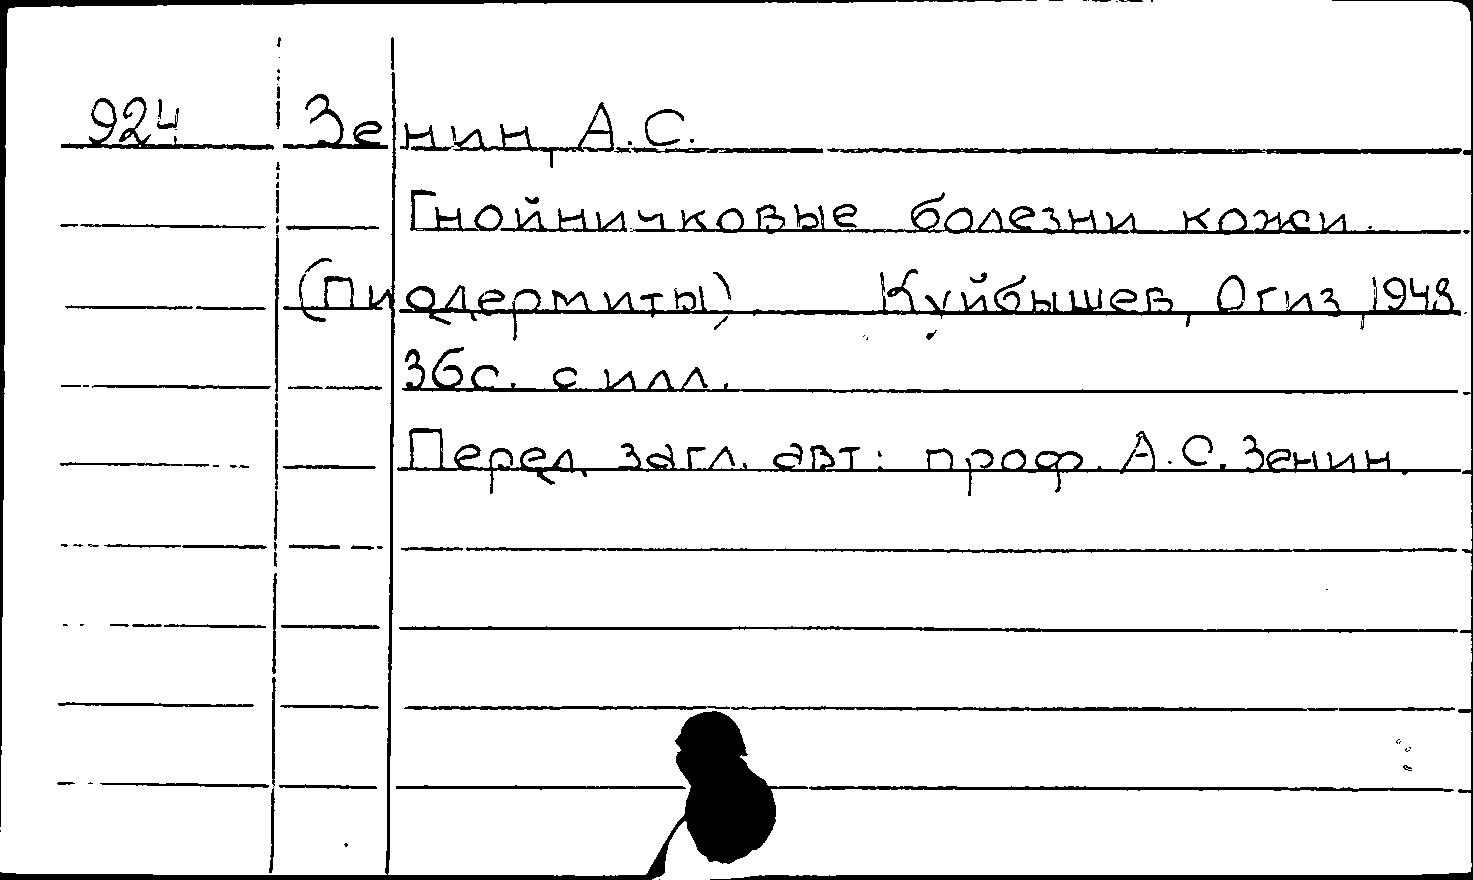 924 Зенин, А.С.
Гнойничковые болезни кожи.
(Пиодермиты) Куйбышев, Огиз, 1948
36с. с илл.
Перед загл. авт: проф. А.С. Зенин.